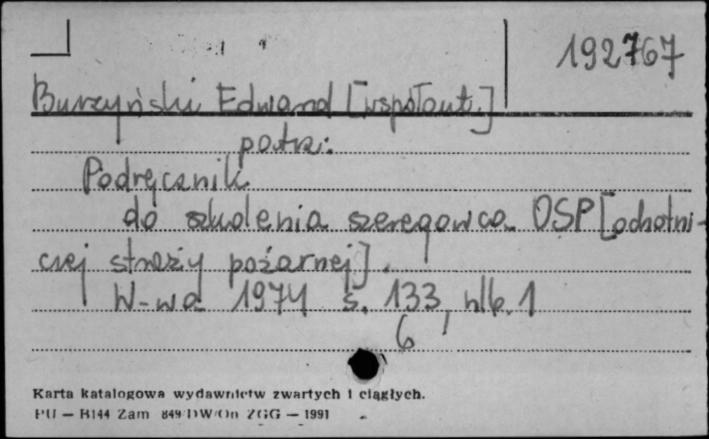 192767
Burzyński Edward [współaut.]
patrz:
Podręcznik
do szkolenia szeregowca OSP [ochotni-
czej straży pożarnej].
W-wa 1974 s. 133, nlb. 1
6
Karta katalogowa wydawnictw zwartych i ciągłych.
PU — B144 Zam 849/DW/On ZGG — 1991